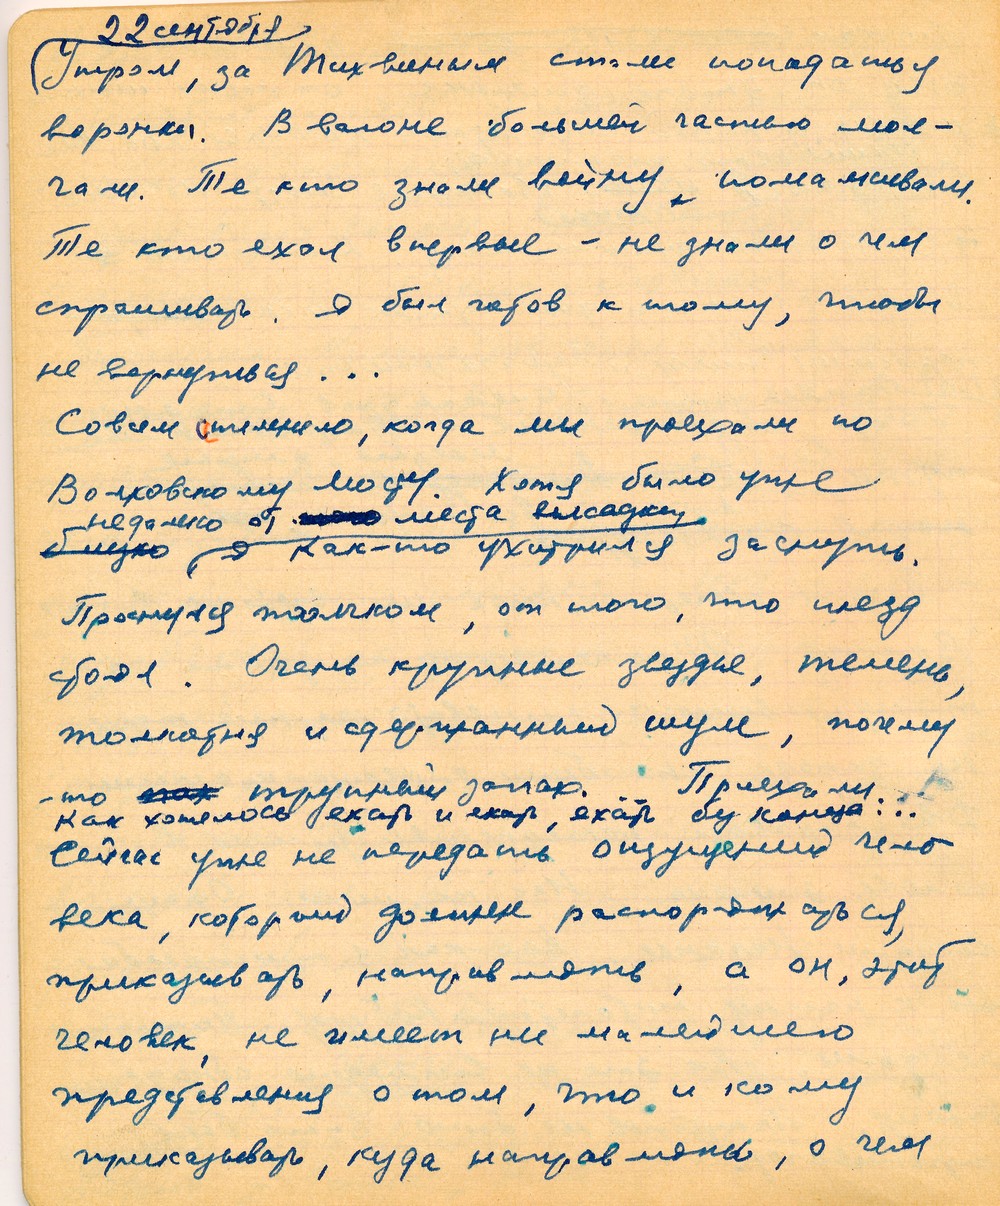 22 сентября
Утром, за Тихвиным стали попадаться
воронки. В вагоне большей частью мол-
чали. Те кто знали войну, помалкивали.
Те кто ехал впервые - не знали о чем
спрашивать. Я был готов к тому, чтобы
не вернуться...
Совсем стемнело, когда мы проехали по
Волховскому мосту. Хотя было уже
недалеко от места высадки,
близко я как-то ухитрился заснуть.
Проснулся толчком, от того, что поезд
стоял. Очень крупные звезды, темень,
толкотня и сдержанный шум, почему
-то трупный запах. Приехали...
Как хотелось ехать и ехать, ехать без конца...
Сейчас уже не передать ощущений чело
века, который должен распоряжаться,
приказывать, направлять, а он, этот
человек, не имеет ни малейшего
представления о том, что и кому
приказывать, куда направлять, о чем